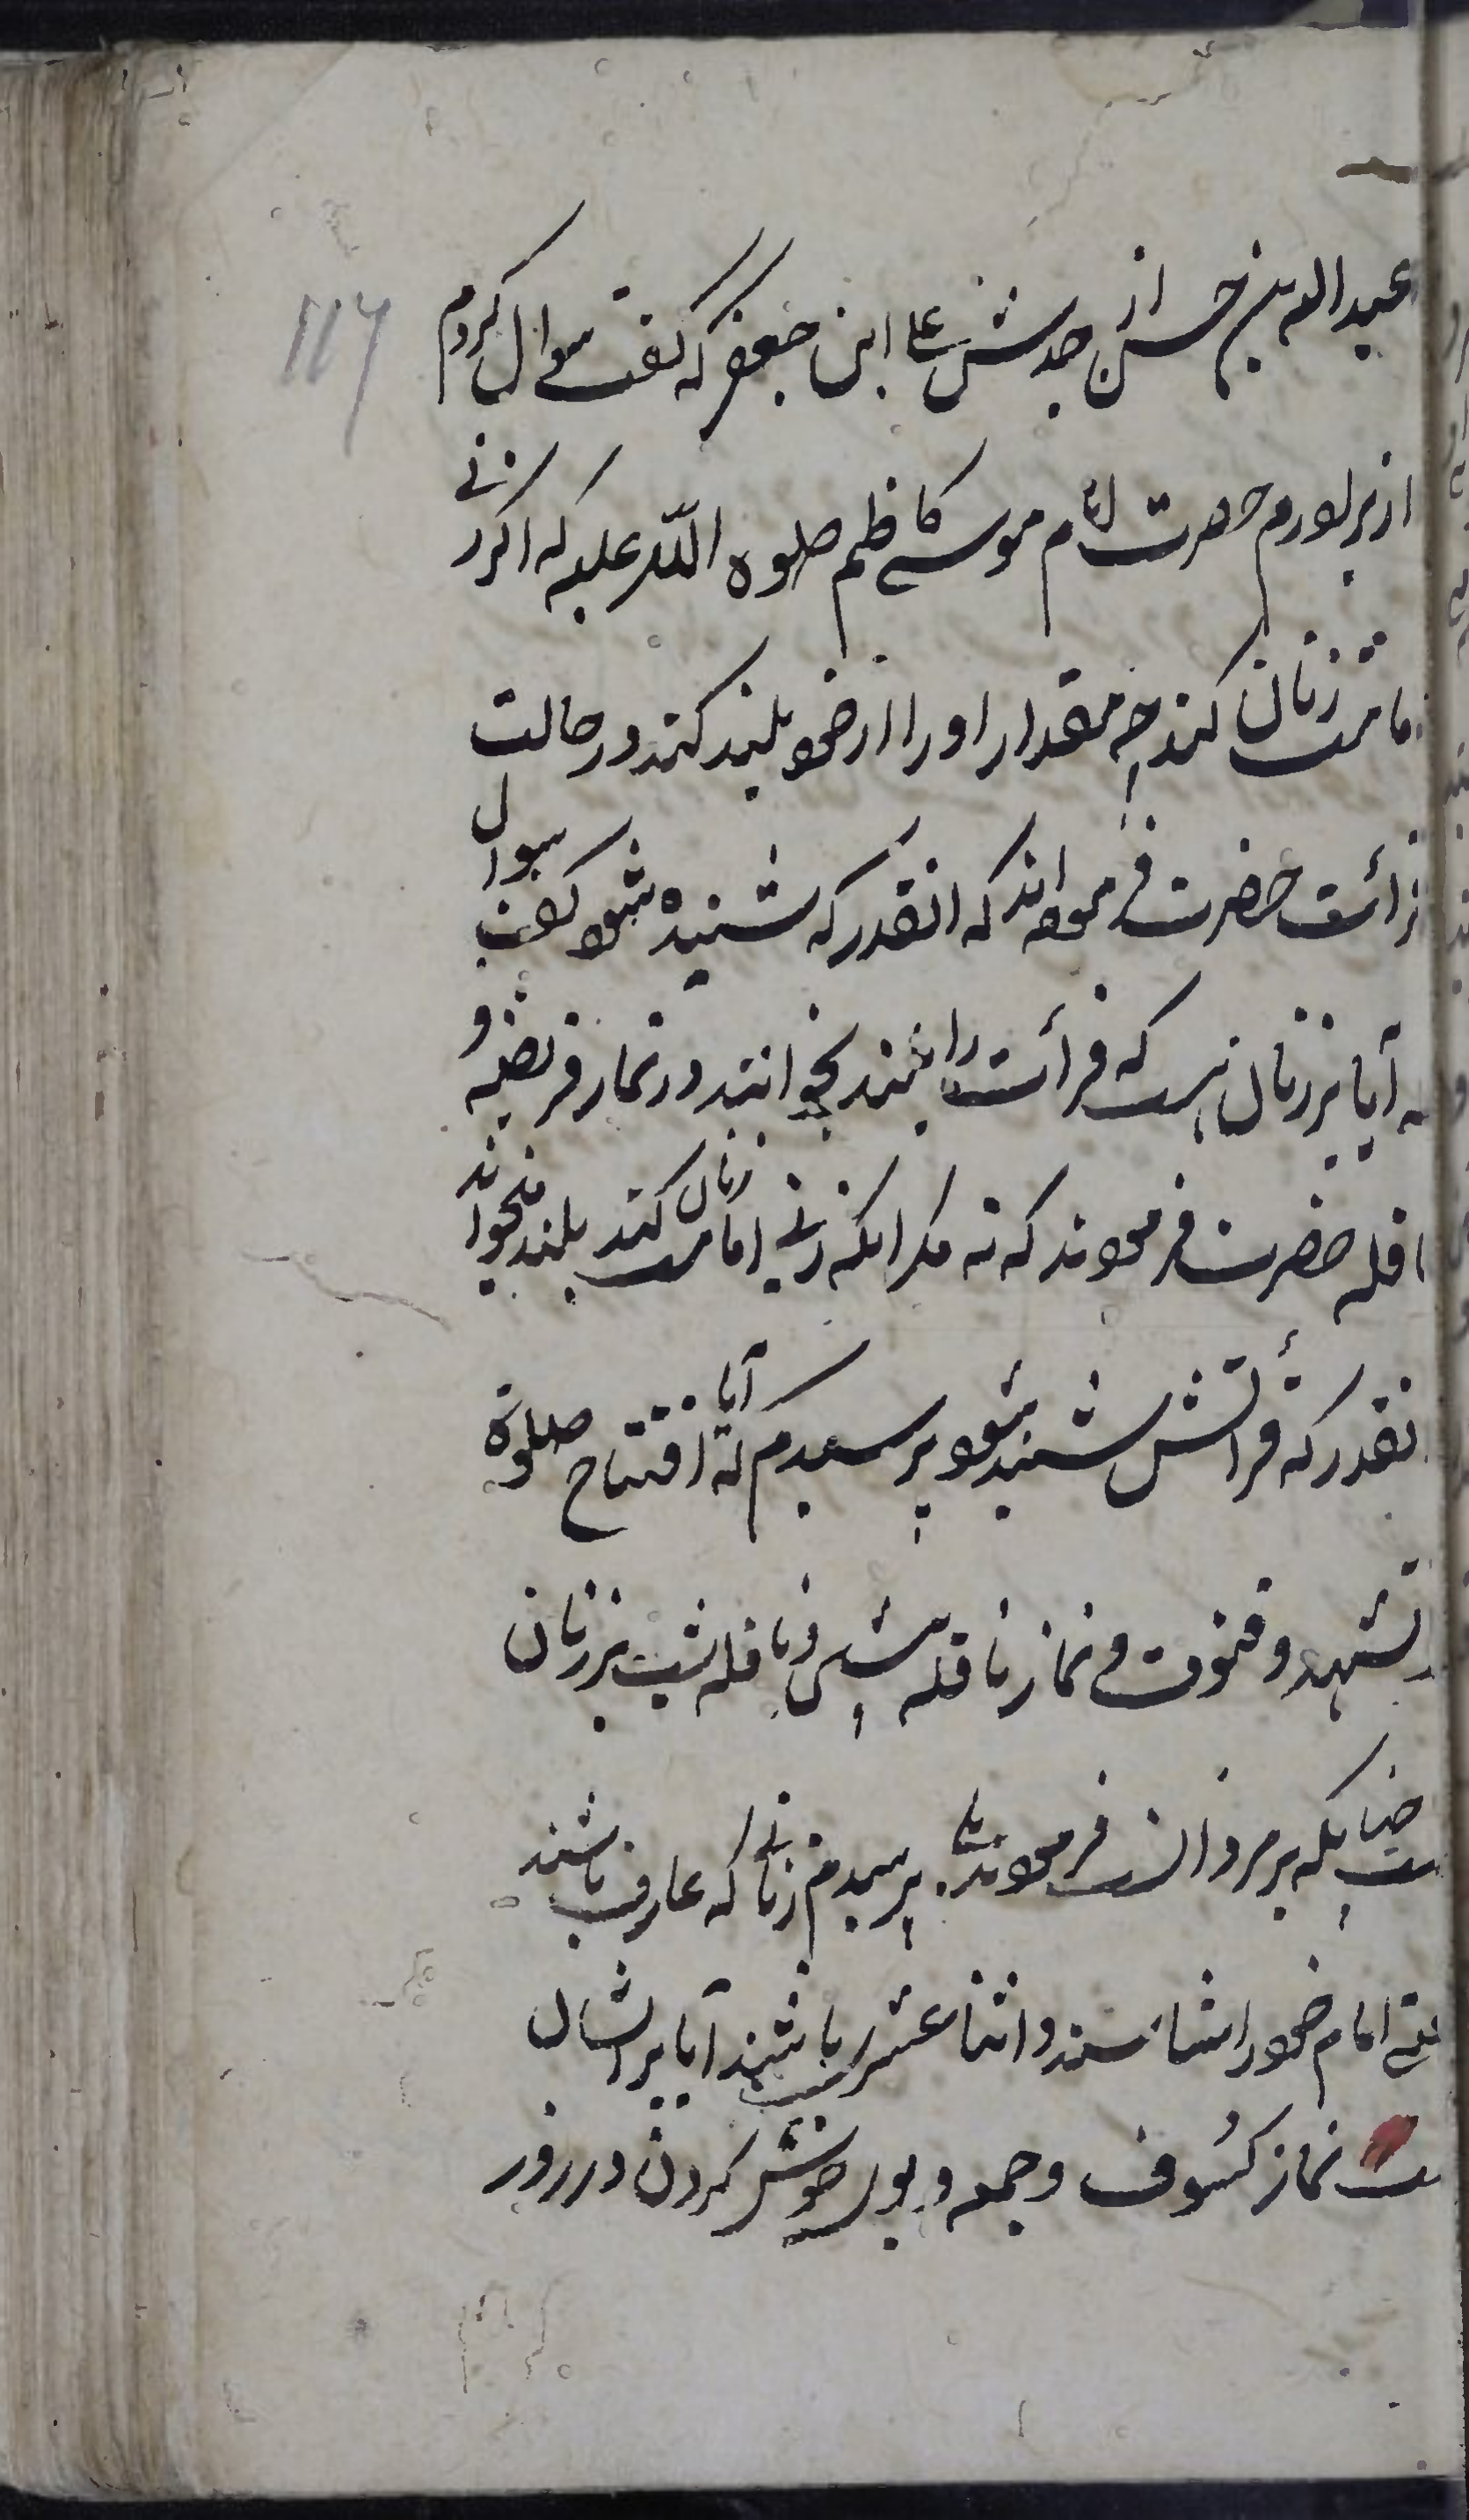 عبدالله بن حسن از جدش علی ابن جعفر که گفت سوال کردم
از برادرم حضرت امام موسی کاظم صلوة اللّه علیه که اگر زنی
امامت زنان کند چه مقدار اورا از خود بلند کند در حالت
قرائت حضرت فرموده‌اند که انقدر که شنیده شود گفت سوال
آیا بر زنان هست که قرأت را بلند بخوانند در نماز فریضه و
نافله حضرت فرمودند که نه مکر انکه زنی امامت زنان کند بلند میخواند
انقدر که قرأتش شنیده شود پرسیدم که آیا افتتاح صلوة
تشهد و قنوت و نماز نافله پیشین و نافله شب بر زنان
هست چنانکه بر مردانست فرمودند بلی پرسیدم زنانی که عارف باشند
امام خود را شناسند و اثنا عشری باشند آیا بر ایشان
هست نماز کسوف و جمعه و بوی خوش کردن در روز
117